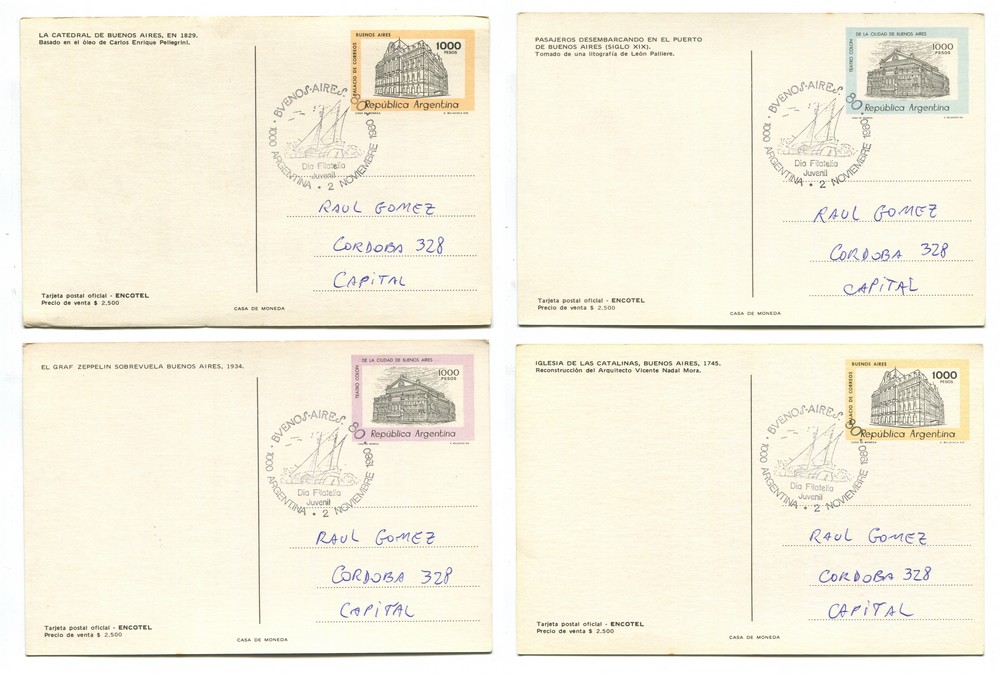 LA CATEDRAL DE BUENOS AIRES, EN 1829.
Basado en el óleo de Carlos Enrique Pellegrini.
BUENOS AIRES
PALACIO DE CORREOS
1000
PESOS
República Argentina
CASA DE MONEDA
BVENOS·AIRES 80
1000 ARGENTINA • 2 NOVIEMBRE 1980
Dia Filatelia
Juvenil
RAUL GOMEZ
CORDOBA 328
CAPITAL
Tarjeta postal oficial - ENCOTEL
Precio de venta $ 2.500
CASA DE MONEDA
PASAJEROS DESEMBARCANDO EN EL PUERTO
DE BUENOS AIRES (SIGLO XIX).
Tomado de una litografía de León Palliere.
DE LA CIUDAD DE BUENOS AIRES
TEATRO COLON
1000
PESOS
República Argentina
CASA DE MONEDA
BVENOS·AIRES 80
1000 ARGENTINA • 2 NOVIEMBRE 1980
Dia Filatelia
Juvenil
RAUL GOMEZ
CORDOBA 328
CAPITAL
Tarjeta postal oficial - ENCOTEL
Precio de venta $ 2.500
CASA DE MONEDA
EL GRAF ZEPPELIN SOBREVUELA BUENOS AIRES, 1934.
DE LA CIUDAD DE BUENOS AIRES
TEATRO COLON
1000
PESOS
República Argentina
CASA DE MONEDA
BVENOS·AIRES 80
1000 ARGENTINA • 2 NOVIEMBRE 1980
Dia Filatelia
Juvenil
RAUL GOMEZ
CORDOBA 328
CAPITAL
Tarjeta postal oficial - ENCOTEL
Precio de venta $ 2.500
CASA DE MONEDA
IGLESIA DE LAS CATALINAS, BUENOS AIRES, 1745.
Reconstrucción del Arquitecto Vicente Nadal Mora.
BUENOS AIRES
PALACIO DE CORREOS
1000
PESOS
República Argentina
CASA DE MONEDA
BVENOS·AIRES 80
1000 ARGENTINA • 2 NOVIEMBRE 1980
Dia Filatelia
Juvenil
RAUL GOMEZ
CORDOBA 328
CAPITAL
Tarjeta postal oficial - ENCOTEL
Precio de venta $ 2.500
CASA DE MONEDA